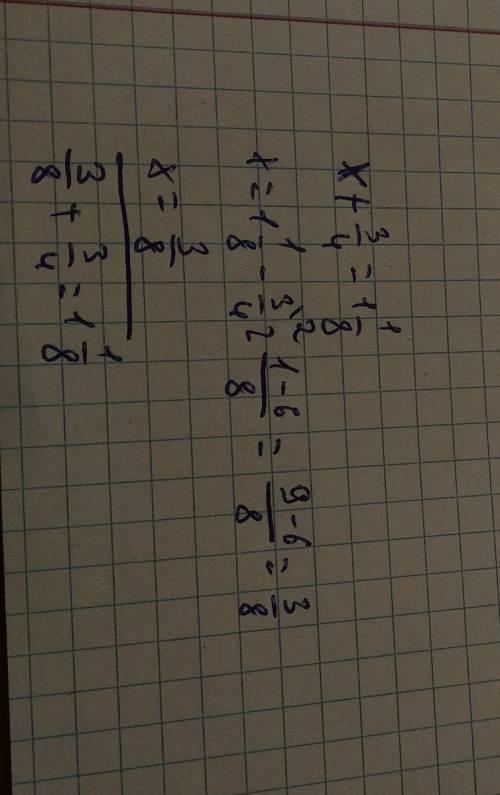 x + 3/4 = 1 1/8
x = 1 1/8 - 3\2/4 = 1-6/8 = 9-6/8 = 3/8
x = 3/8
3/8 + 3/4 = 1 1/8